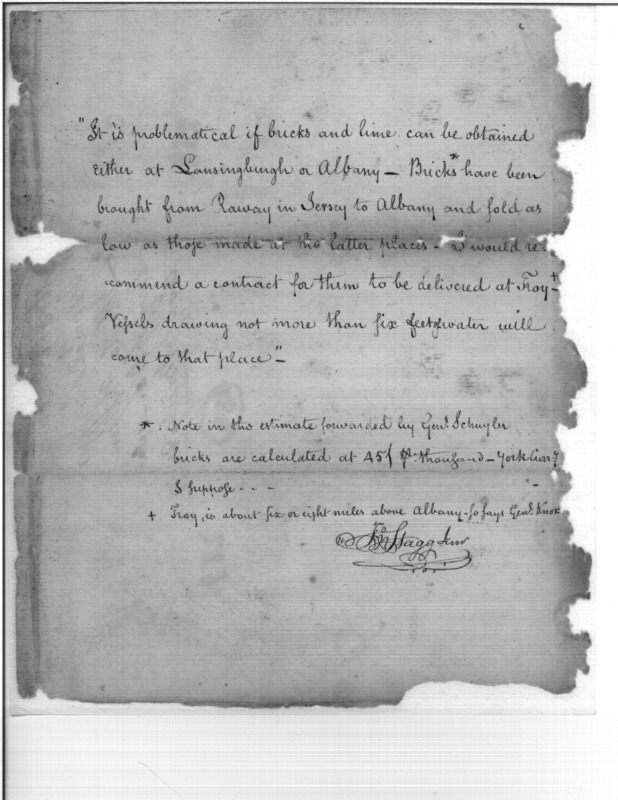 "It is problematical if bricks and lime can be obtained
either at Lansingburgh or Albany – Bricks* have been
brought from Raway in Jersey to Albany and sold as
low as those made at the latter places – I would re
=commend a contract for them to be delivered at Troy+
Vessels drawing not more than six feet water will
come to that place"–
*. Note in the estimate forwarded by Genl. Schuyler
bricks are calculated at 45/ pr. thousand – York Curr.y
I suppose - - -
+ Troy, is about six or eight miles above Albany – so says Genl. Knox
Jno Stagg Junr